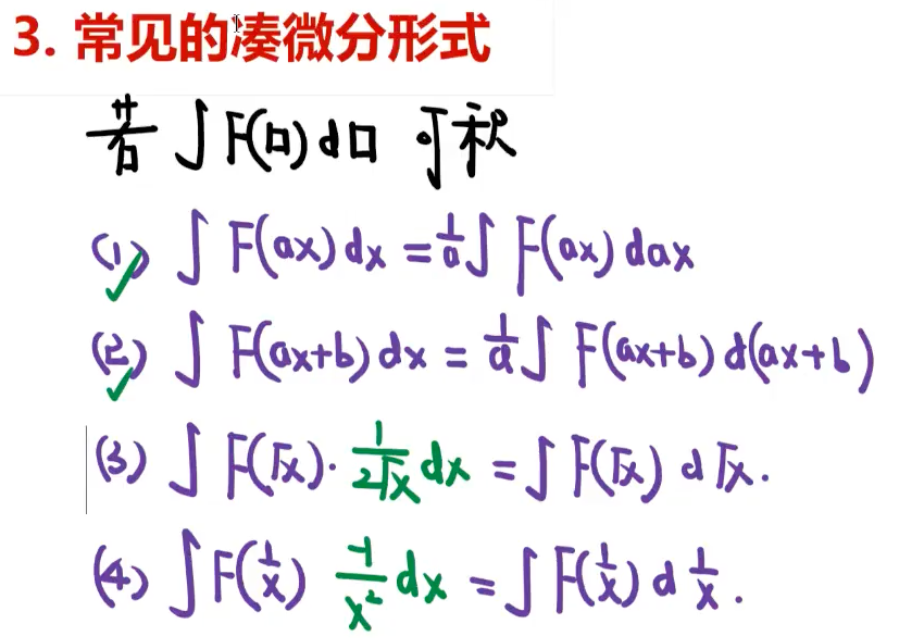 3. 常见的凑微分形式
若 ∫ F(口) d口 可积
(1) ∫ F(ax) dx = 1/a ∫ F(ax) dax
(2) ∫ F(ax+b) dx = 1/a ∫ F(ax+b) d(ax+b)
(3) ∫ F(√x) · 1/(2√x) dx = ∫ F(√x) d√x.
(4) ∫ F(1/x) -1/x² dx = ∫ F(1/x) d 1/x.